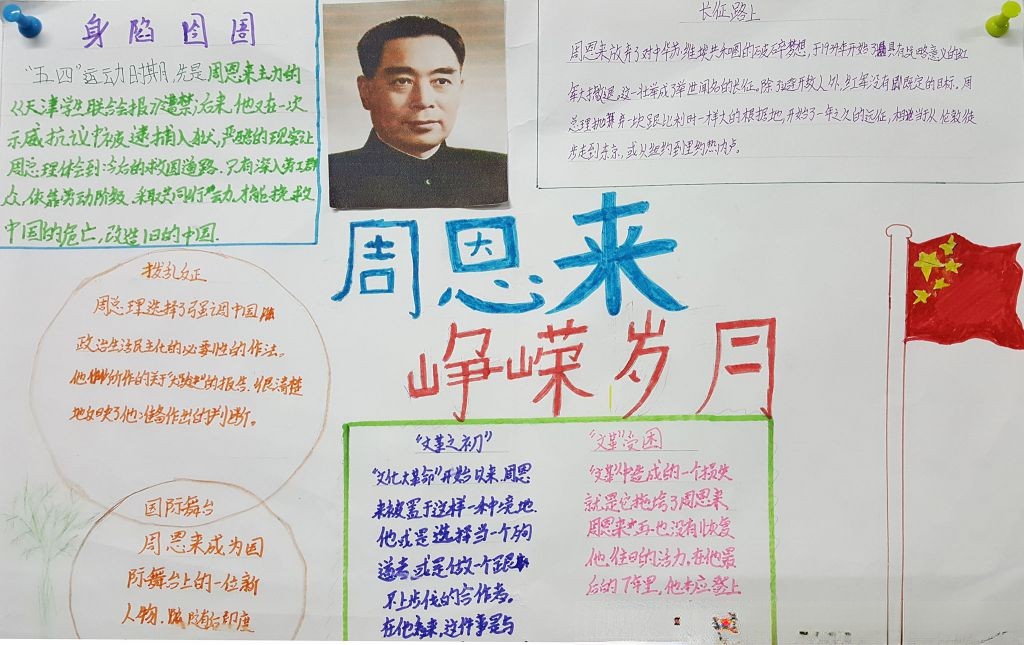 身陷囹圄
“五四”运动时期,先是周恩来主办的
《天津学生联合会报》遭禁,后来,他又在一次
示威抗议中被逮捕入狱,严酷的现实让
周总理体会到:今后的救国道路,只有深入劳工群
众,依靠劳动阶级,采取共同行动,才能挽救
中国的危亡,改造旧的中国.
长征路上
周恩来放弃了对中华苏维埃共和国的破碎梦想,于1934年开始了具有战略意义的红
军大撤退,这一壮举成了举世闻名的长征。除拉进敌人外,红军没有既定的目标.周
总理抛弃一块跟比利时一样大的根据地,开始了一年之久的远征,相当于从伦敦徒
步走到东京,或从纽约到里约热内卢。
周恩来
峥嵘岁月
拨乱反正
周总理选择了强调中国
政治生活民主化的必要性的作法。
他所作的关于“”的报告,很清楚
地反映了他准备作出的判断。
国际舞台
周恩来成为国
际舞台上的一位新
人物.随后印度
“文革之初”
“文化大革命”开始以来,周恩
来被置于这样一种境地.
他或是选择当一个殉
道者,或是做一个跟
不上步伐的合作者。
在他看来,这件事是与
“文革”受困
“文革”中造成的一个损失
就是它拖垮了周恩来
周恩来再也没有恢复
他往日的活力.在他最
后的7年里,他本应登上